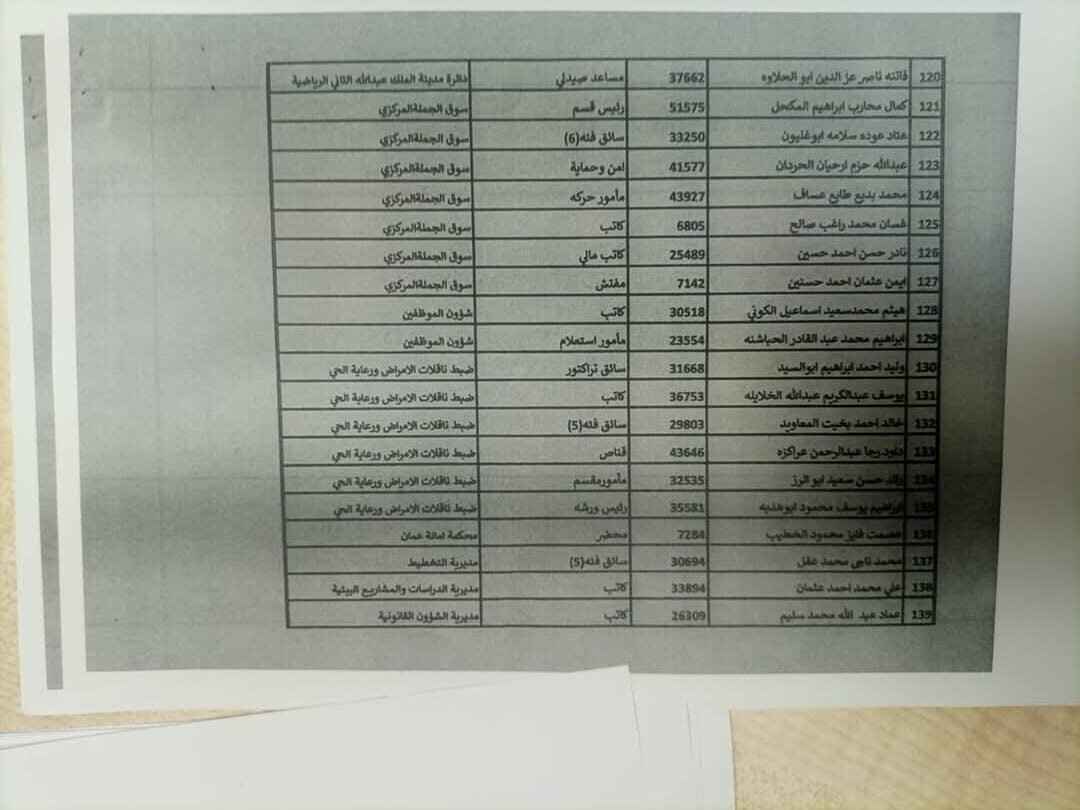 120 فاتنه ناصر عز الدين ابو الحلاوه 37662 مساعد صيدلي دائرة مدينة الملك عبدالله الثاني الرياضية
121 كمال محارب ابراهيم المكحل 51575 رئيس قسم سوق الجملةالمركزي
122 عناد عوده سلامه ابوغليون 33250 سائق فئه(6) سوق الجملةالمركزي
123 عبدالله حزم ارحيان الحردان 41577 امن وحماية سوق الجملةالمركزي
124 محمد بديع طايع عساف 43927 مأمور حركه سوق الجملةالمركزي
125 غسان محمد راغب صالح 6805 كاتب سوق الجملةالمركزي
126 نادر حسن احمد حسين 25489 كاتب مالي سوق الجملةالمركزي
127 ايمن عثمان احمد حسنين 7142 مفتش سوق الجملةالمركزي
128 هيثم محمدسعيد اسماعيل الكوني 30518 كاتب شؤون الموظفين
129 ابراهيم محمد عبد القادر الحباشنه 23554 مأمور استعلام شؤون الموظفين
130 وليد احمد ابراهيم ابوالسيد 31668 سائق تراكتور ضبط ناقلات الامراض ورعاية الحي
131 يوسف عبدالكريم عبدالله الخلايله 36753 كاتب ضبط ناقلات الامراض ورعاية الحي
132 خالد احمد بخيت المعاويد 29803 سائق فئه(5) ضبط ناقلات الامراض ورعاية الحي
133 داود رجا عبدالرحمن عراكزه 43646 قناص ضبط ناقلات الامراض ورعاية الحي
134 رائد حسن سعيد ابو الرز 32535 مأمورمقسم ضبط ناقلات الامراض ورعاية الحي
135 ابراهيم يوسف محمود ابوهنديه 35581 رئيس ورشه ضبط ناقلات الامراض ورعاية الحي
136 عصمت فايز محمود الخطيب 7284 محضر محكمة امانة عمان
137 محمد ناجي محمد عقل 30694 سائق فئه(5) مديرية التخطيط
138 علي محمد احمد عثمان 33894 كاتب مديرية الدراسات والمشاريع البيئية
139 عماد عبد الله محمد سليم 26309 كاتب مديرية الشؤون القانونية